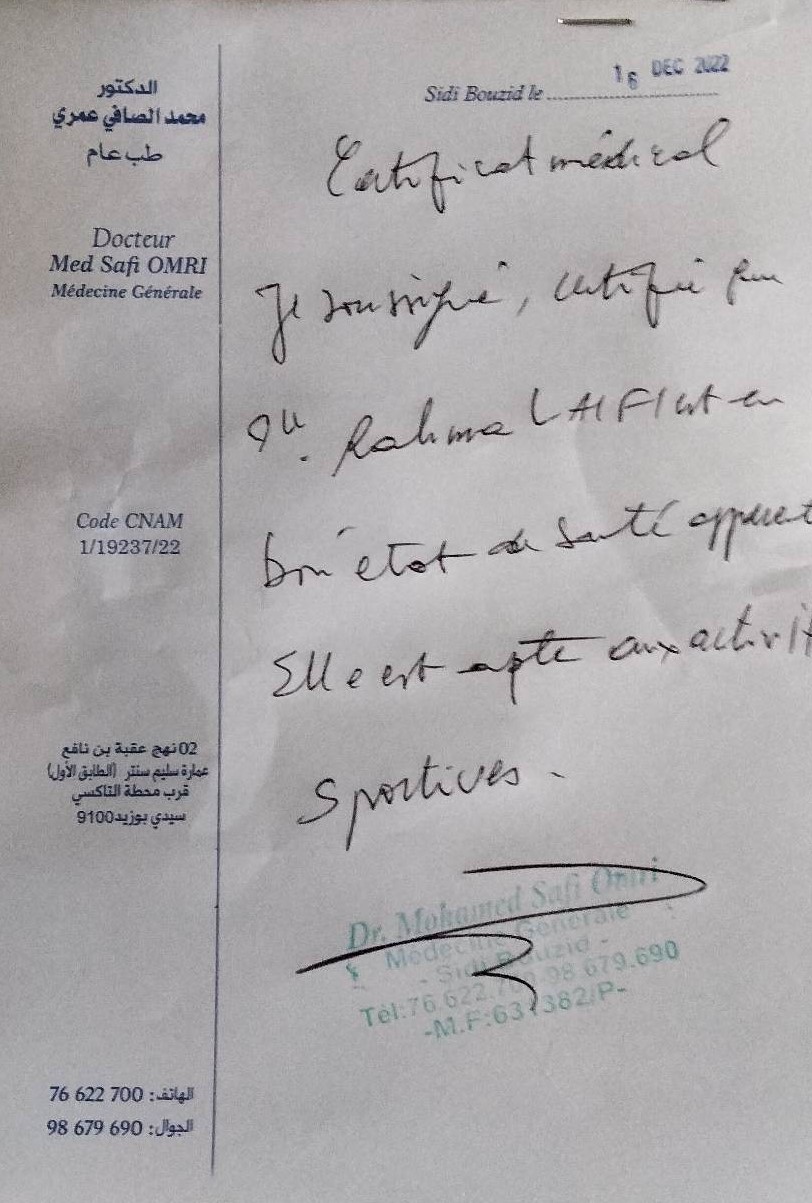 الدكتور
محمد الصافي عمري
طب عام
Docteur
Med Safi OMRI
Médecine Générale
Code CNAM
1/19237/22
02 نهج عقبة بن نافع
عمارة سليم سنتر (الطابق الأول)
قرب محطة التاكسي
سيدي بوزيد 9100
الهاتف: 76 622 700
الجوال: 98 679 690
Sidi Bouzid le 16 DEC 2022
Certificat médical
Je soussigné, certifie que
Mlle. Rahma LAIFI est en
bon état de santé apparent
Elle est apte aux activit
Sportives.
Dr. Mohamed Safi Omri
Médecine Générale
- Sidi Bouzid -
Tél:76 622.700 98 679.690
-M.F:631382/P-